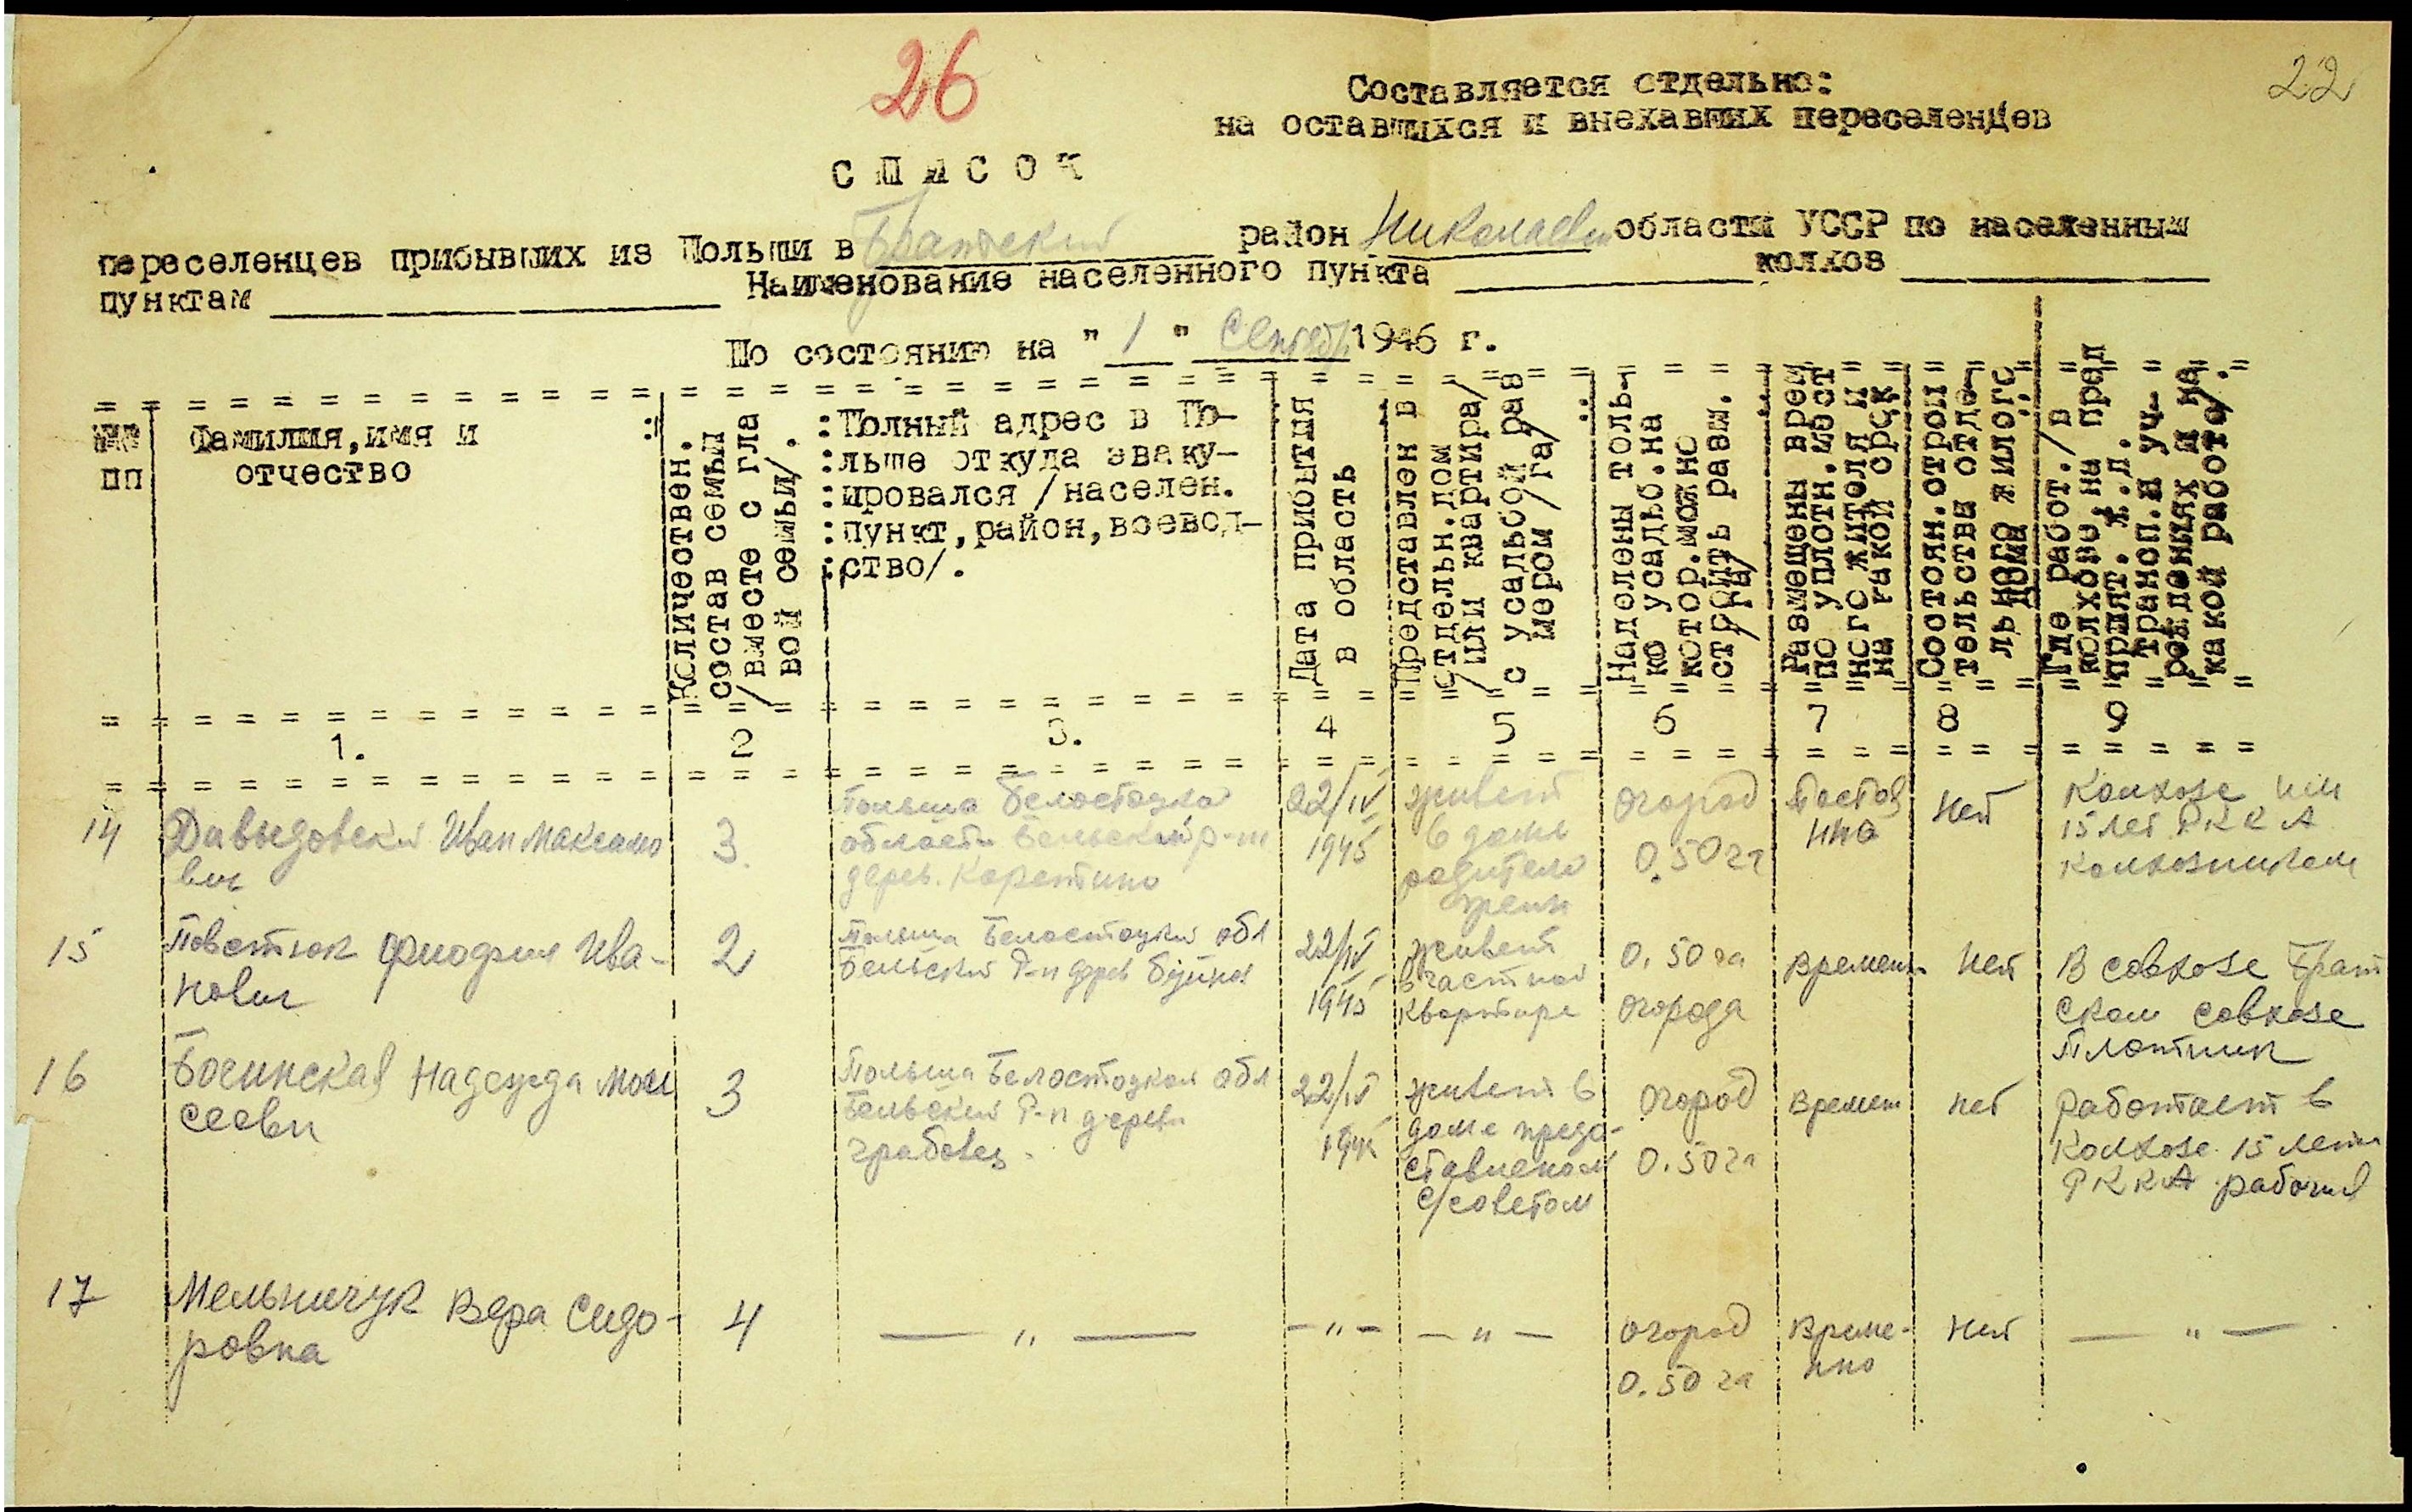 26
22
Составляется отдельно:
на оставшихся и внехавших переселенцев
С П И С О К
переселенцев прибывших из Польши в Братский район Николаевск области УССР по населенным
пунктам Наименование населенного пункта колхоз
По состоянию на " 1 " Сентябр 1946 г.
№№ пп
Фамилия, имя и
отчество
Количествен.
состав семьи
/вместе с гла
вой семьи/.
Полный адрес в По-
льше откуда эваку-
ировался /населен.
пункт, район, воевод-
ство/.
Дата прибытия
в область
Предоставлен в
отдельн.дом
/или квартира/
с усадьбой раз
мером /га/
Наделены толь-
ко усадьб.на
котор.можно
строить разм.
/га/
Размещены врем
по уплотн.мест
ного жителя и
на какой срок
Состоян.строи
тельства отде-
льного жилого
дома
Где работ./в
колхозе, на пред
прият. ж.д.
трансп.и уч-
реждениях и на
какой работе/.
1. 2 3. 4 5 6 7 8 9
14 Давыдовски Иван Максимо
вич
3
Польша Белостоцкая
области Бельский р-н
дерев.
22/IV
1945
живет
в доме
родителей
жени
огород
0.50 га
Постоя
нно
Нет
Колхозе им
15 лет РККА
колхозником
15 Повстюк Ива-
нович
2
Польша Белостоцкой обл
Бельский Р-н дерев
22/IV
1945
живет
в частной
квартире
0.50 га
огорода
Времен.
нет
В совхозе Брат
ском совхозе
Плотник
16 Бочинская Надежда Мои
сеевн
3
Польша Белостоцкая обл
Бельский Р-н деревн
грабовец.
22/IV
1945
живет в
доме предо-
ставленом
с/советом
огород
0.50 га
времен
нет
работает в
колхозе 15 летия
РККА рабочий
17 Мельничук Вера Сидо-
ровна
4
— " —
— " —
— " —
огород
0.50 га
Време-
нно
нет
— " —